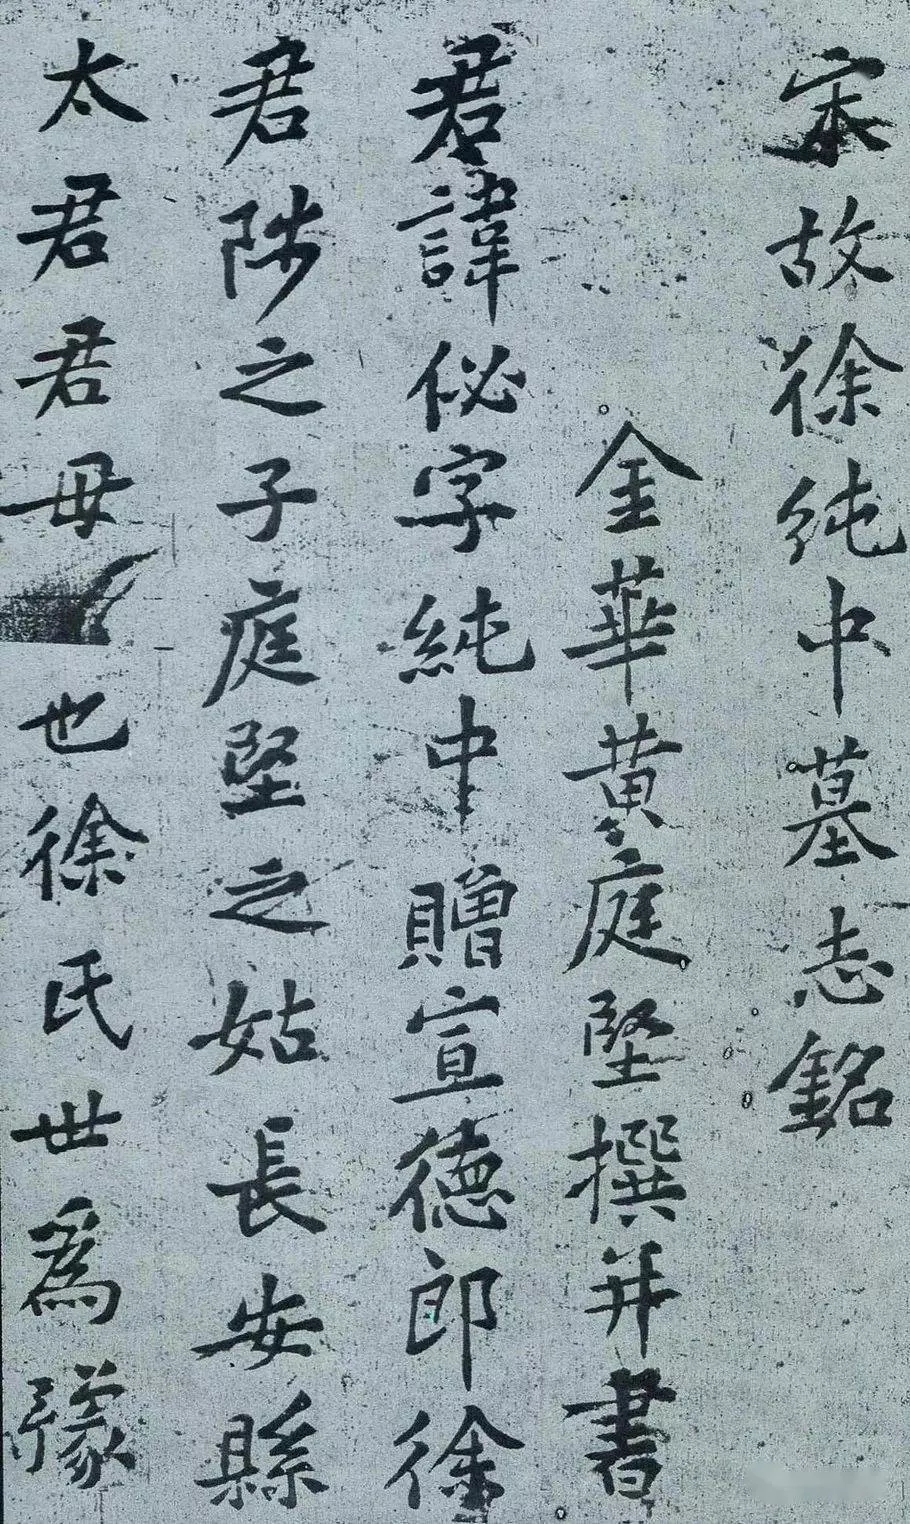 宋故徐純中墓志銘
金華黄庭堅撰并書
君諱佖字純中贈宣德郎徐
君陟之子庭堅之姑長安縣
太君君母也徐氏世為豫